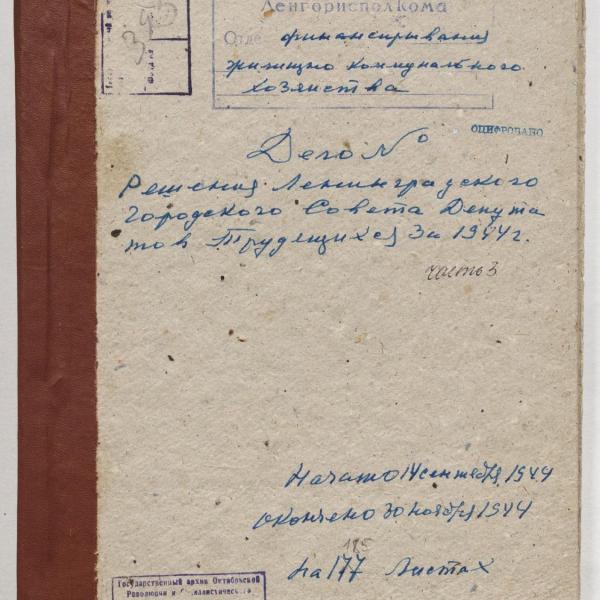 345
Ленгорисполкома
Отдел финансирывания
жилищно коммунального
хозяйства
ОЦИФРОВАНО
Дело №
Решения Ленинградского
Городского Совета Депута
тов Трудящихся За 1944г.
часть 3
Начато 14 сентября 1944
окончено 30 ноября 1944
185
на 177 Листах
Государственный архив Октябрьской
Революции и Социалистического